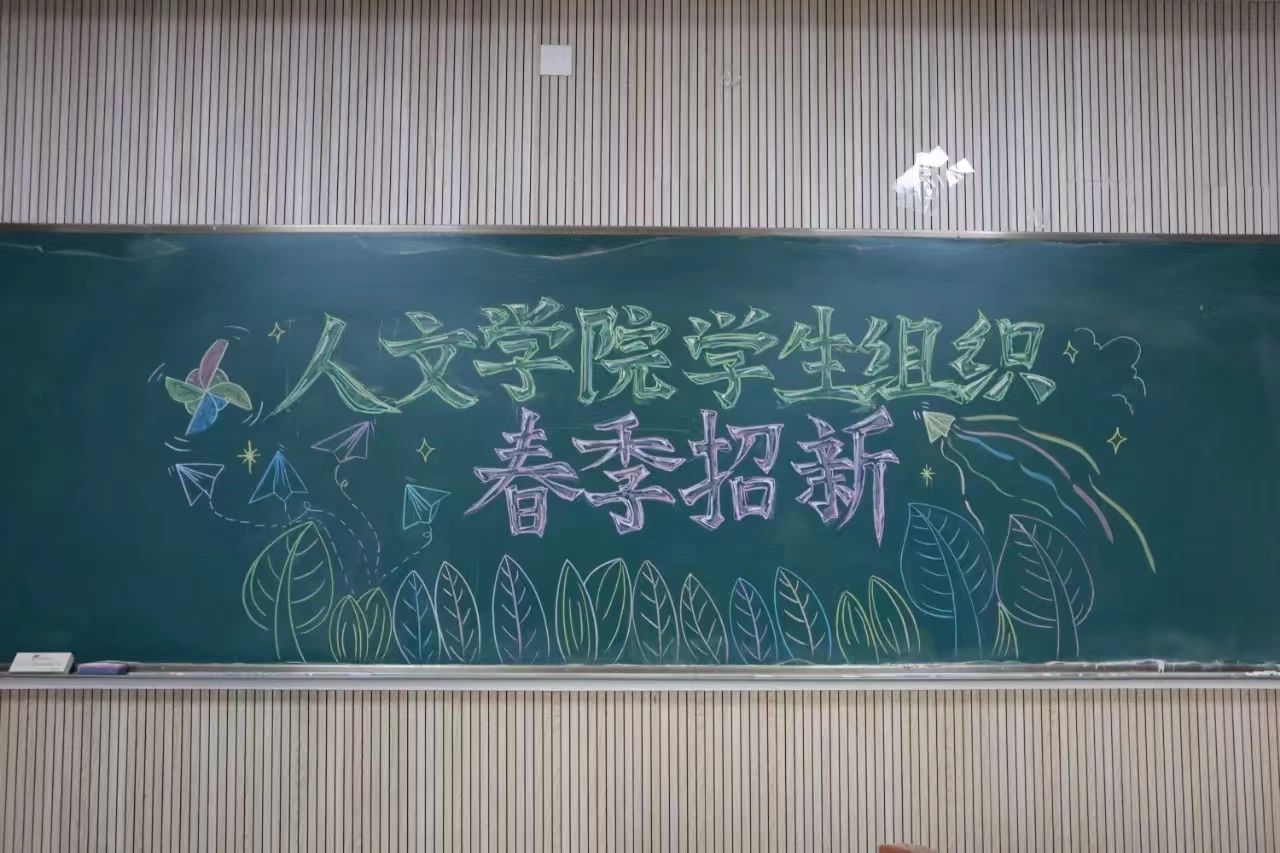 人文学院学生组织
春季招新